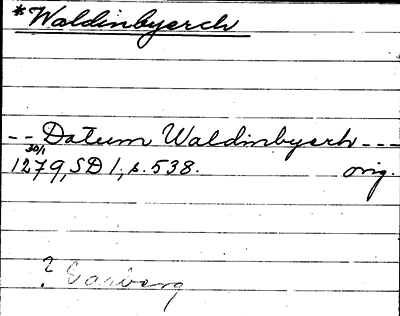 *Waldinbyerch
-- Datum Waldinbyerch ---
30/1
1279, SD 1, s. 538. orig.
? Varberg